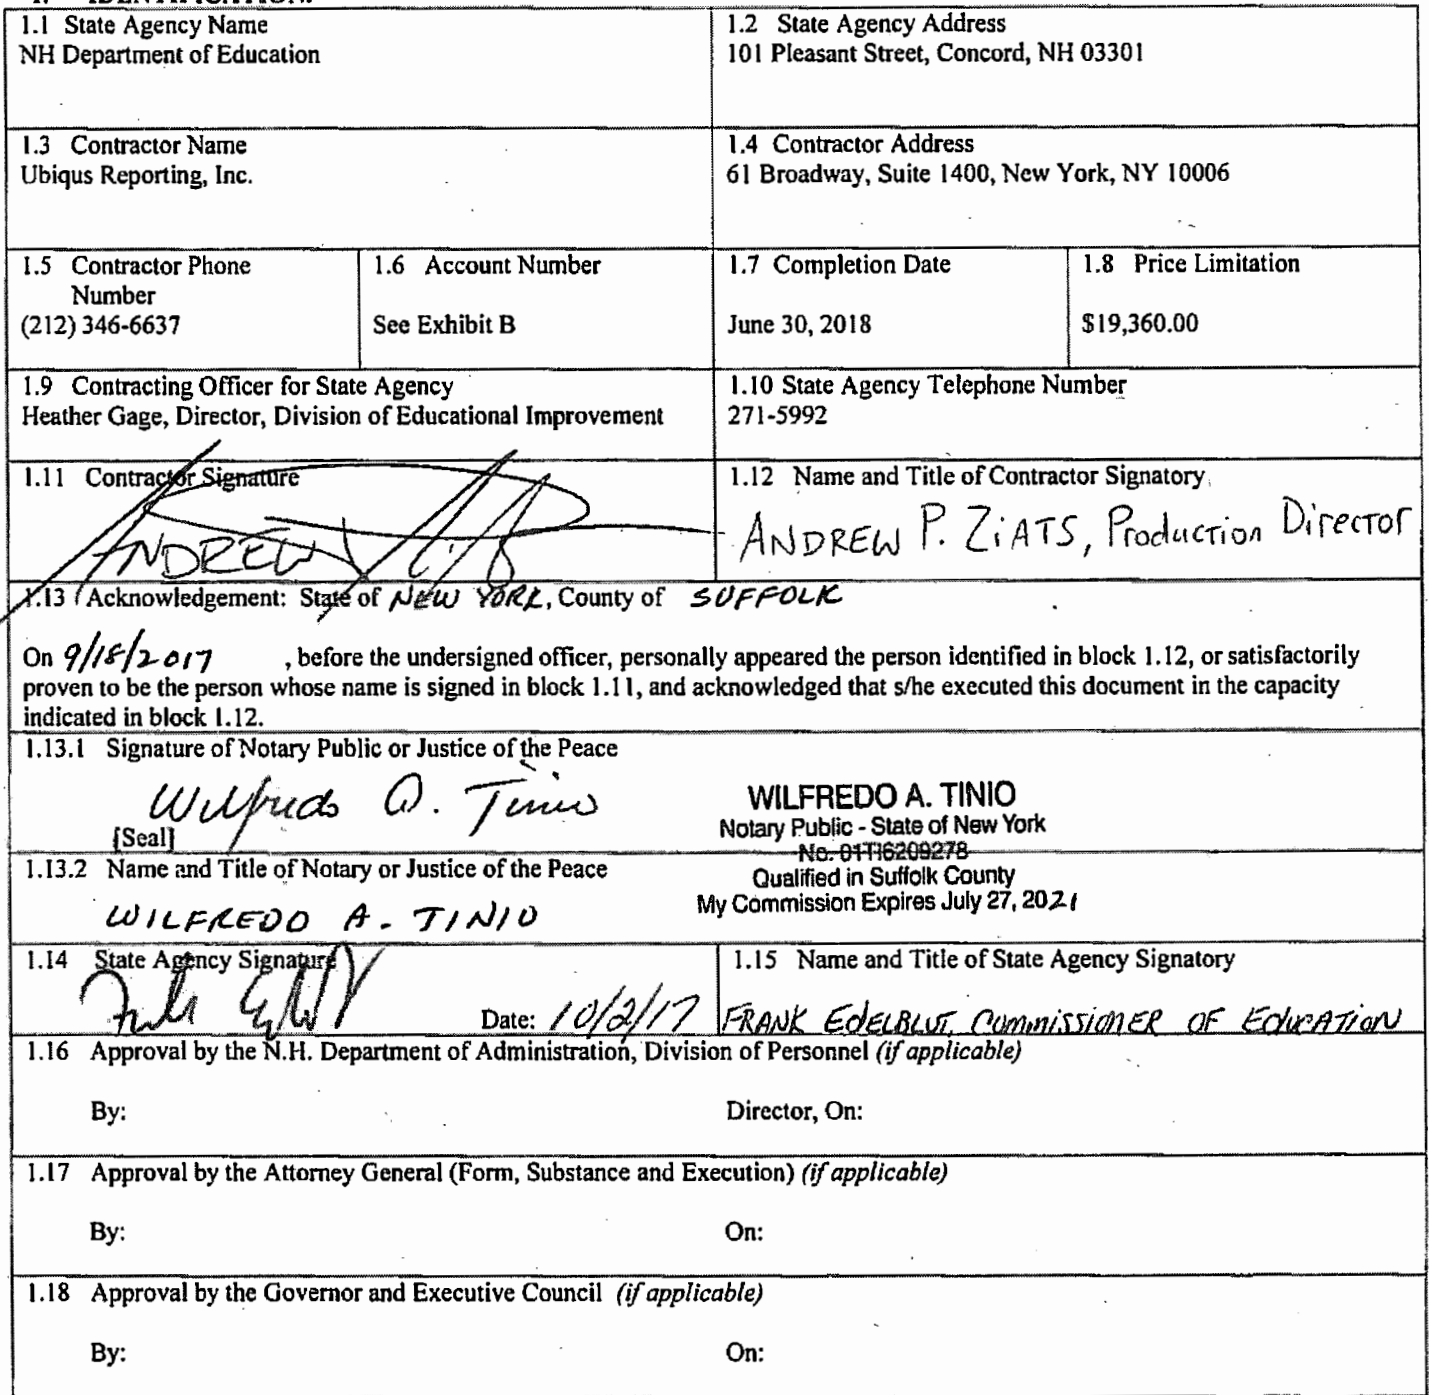 1. IDENTIFICATION.
1.1 State Agency Name
NH Department of Education
1.2 State Agency Address
101 Pleasant Street, Concord, NH 03301
1.3 Contractor Name
Ubiqus Reporting, Inc.
1.4 Contractor Address
61 Broadway, Suite 1400, New York, NY 10006
1.5 Contractor Phone
Number
(212) 346-6637
1.6 Account Number
See Exhibit B
1.7 Completion Date
June 30, 2018
1.8 Price Limitation
$19,360.00
1.9 Contracting Officer for State Agency
Heather Gage, Director, Division of Educational Improvement
1.10 State Agency Telephone Number
271-5992
1.11 Contractor Signature
ANDREW
1.12 Name and Title of Contractor Signatory
ANDREW P. ZiATS, Production Director
1.13 Acknowledgement: State of NEW YORK, County of SUFFOLK
On 9/18/2017 , before the undersigned officer, personally appeared the person identified in block 1.12, or satisfactorily
proven to be the person whose name is signed in block 1.11, and acknowledged that s/he executed this document in the capacity
indicated in block 1.12.
1.13.1 Signature of Notary Public or Justice of the Peace
Wilfredo A. Tinio
[Seal]
WILFREDO A. TINIO
Notary Public - State of New York
No. 01TI6209278
Qualified in Suffolk County
My Commission Expires July 27, 2021
1.13.2 Name and Title of Notary or Justice of the Peace
WILFREDO A. TINIO
1.14 State Agency Signature
Date: 10/2/17
1.15 Name and Title of State Agency Signatory
FRANK EDELBLUT, COMMISSIONER OF EDUCATION
1.16 Approval by the N.H. Department of Administration, Division of Personnel (if applicable)
By:
Director, On:
1.17 Approval by the Attorney General (Form, Substance and Execution) (if applicable)
By:
On:
1.18 Approval by the Governor and Executive Council (if applicable)
By:
On: